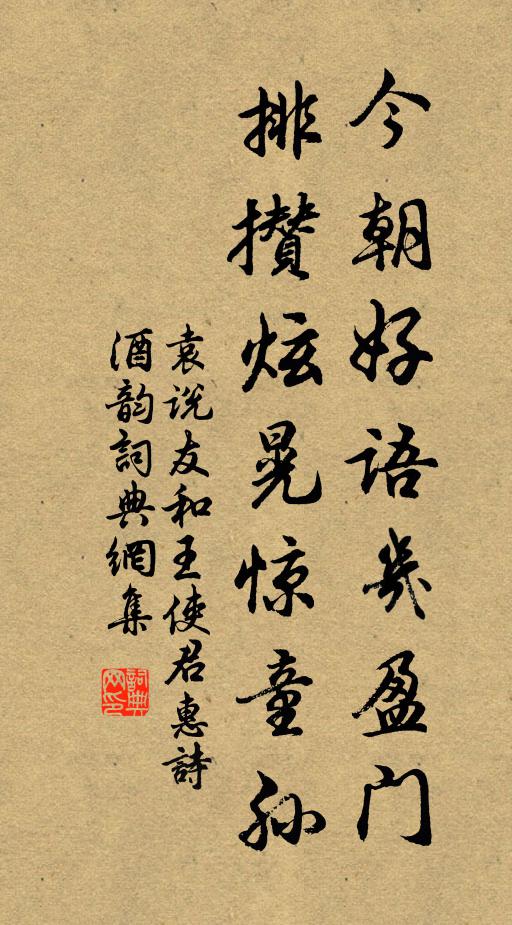 今朝好语几盈门
排攒炫晃惊童孙
袁说友和王使君惠詩
酒韵詞典網集
詞典网印